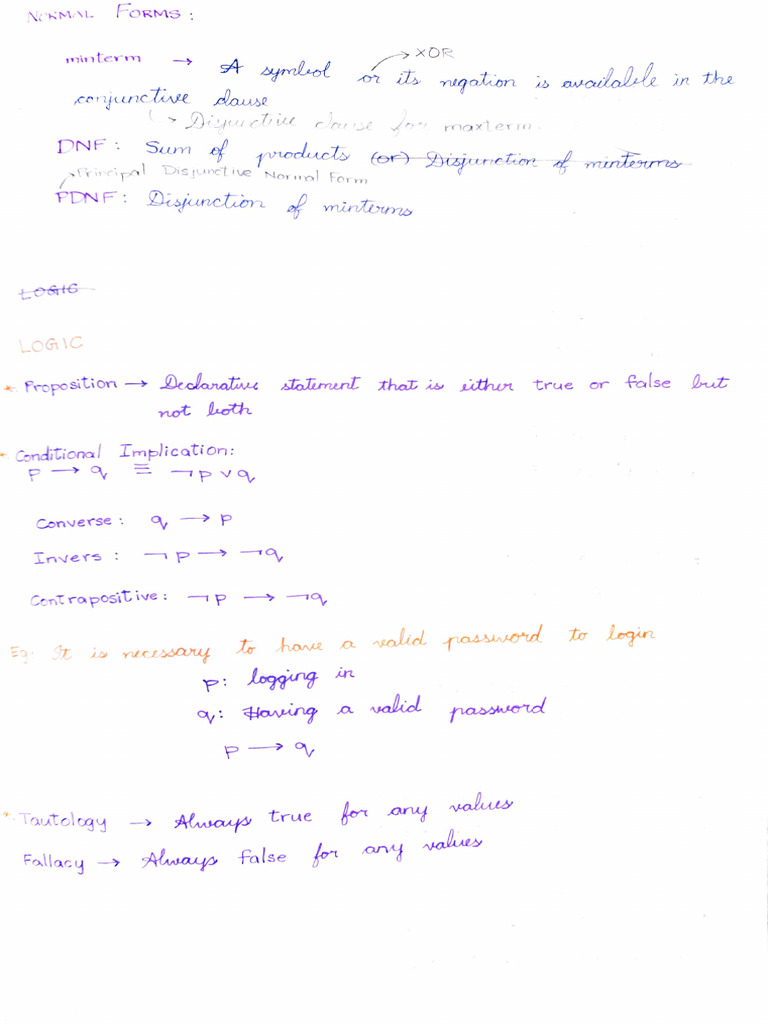 NORMAL FORMS:
XOR
minterm → A symbol or its negation is available in the
conjunctive clause
↳ Disjuctive clause for maxterm.
DNF: Sum of products (or) Disjunction of minterms
Principal Disjunctive Normal Form
PDNF: Disjunction of minterms
LOGIC
LOGIC
* Proposition → Declarative statement that is either true or false but
not both
* Conditional Implication:
p → q ≡ ¬p ∨ q
Converse: q → p
Invers: ¬p → ¬q
Contrapositive: ¬p → ¬q
Eg: It is necessary to have a valid password to login
p: logging in
q: Having a valid password
p → q
* Tautology → Always true for any values
Fallacy → Always false for any values